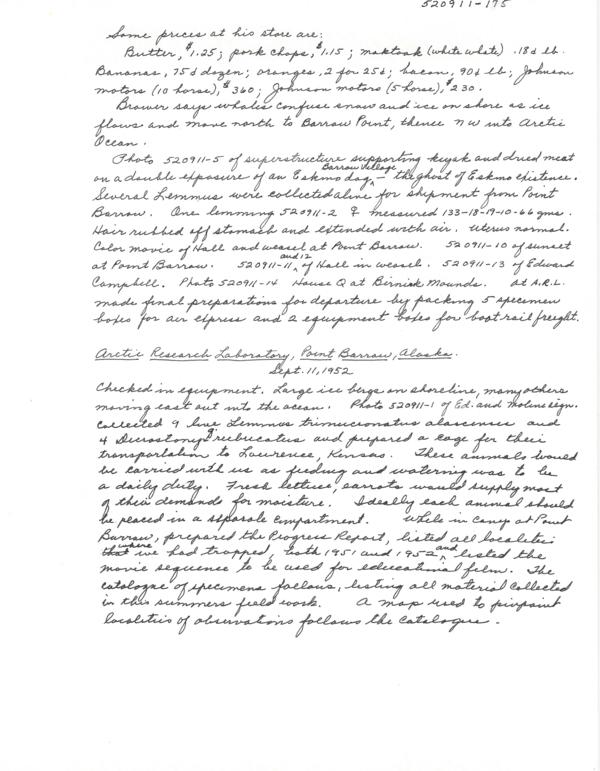 520911-175
Some prices at his store are:
Butter, $1.25; pork chops, $1.15; maktaak (white whale) .18¢ lb.
Bananas, 75¢ dozen; oranges, 2 for 25¢; bacon, 90¢ lb; Johnson
motors (10 horse), $360; Johnson motors (5 horse), $230.
Brower says whales confuse snow and ice on shore as ice
flows and move north to Barrow Point, thence NW into Arctic
Ocean.
Photo 520911-5 of superstructure supporting kyak and dried meat
on a double exposure of an Eskimo dog, Barrow Village – the ghost of Eskimo existence.
Several Lemmus were collected alive for shipment from Point
Barrow. One lemming 520911-2 ♀ measured 133-18-19-10-66 gms.
Hair rubbed off stomach and extended with air. Uterus normal.
Color movie of Hall and weasel at Point Barrow. 520911-10 of sunset
at Point Barrow. 520911-11, and 12 of Hall in weasel. 520911-13 of Edward
Campbell. Photo 520911-14 House Q at Birnirk Mounds. At A.R.L.
made final preparations for departure by packing 5 specimen
boxes for air express and 2 equipment boxes for boat rail freight.
Arctic Research Laboratory, Point Barrow, Alaska.
Sept. 11, 1952
Checked in equipment. Large ice bergs on shoreline, many others
moving east out into the ocean. Photo 520911-1 of Ed. and sign.
Collected 9 live Lemmus trimucronatus alascensis and
4 Dicrostonyx rubricatus and prepared a cage for their
transportation to Lawrence, Kansas. These animals would
be carried with us as feeding and watering was to be
a daily duty. Fresh lettuce, carrots would supply most
of their demands for moisture. Ideally each animal should
be placed in a separate compartment. While in camp at Point
Barrow, prepared the Progress Report, listed all localities
that where we had trapped, both 1951 and 1952 and listed the
movie sequence to be used for educational film. The
catalogue of specimens follows, listing all material collected
in this summers field work. A map used to pinpoint
localities of observations follows the catalogue.